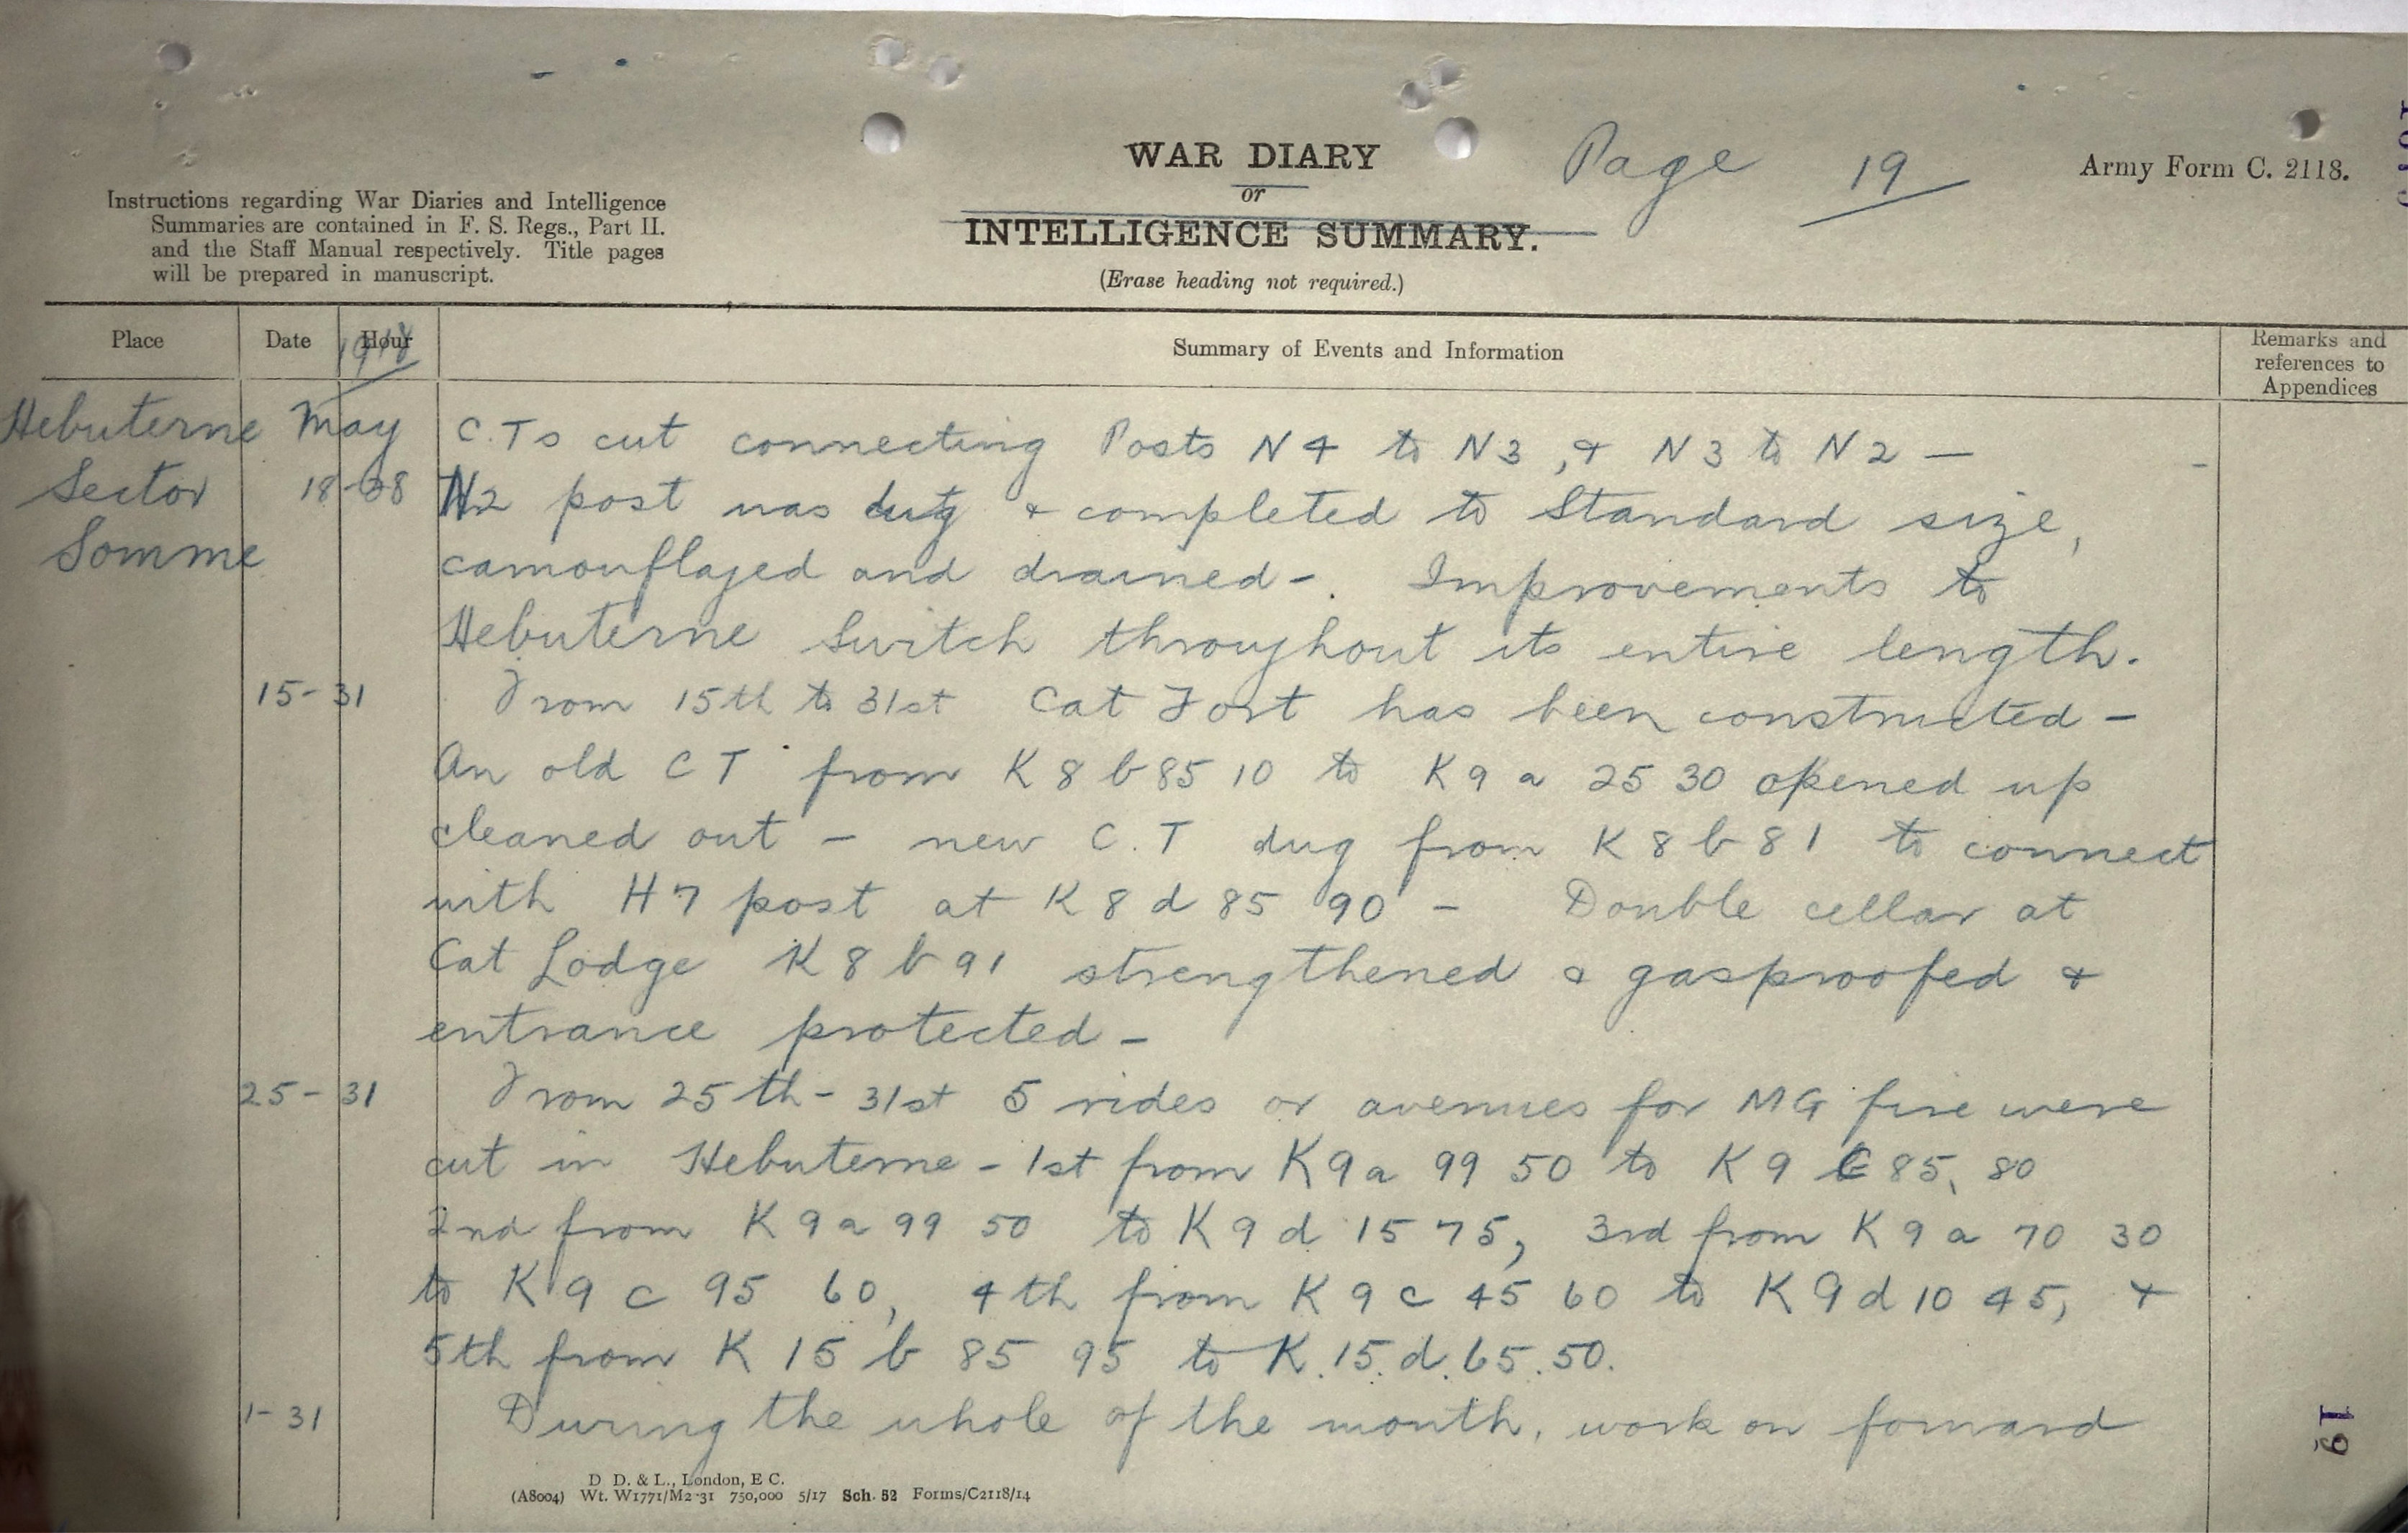 WAR DIARY
or
INTELLIGENCE SUMMARY.
(Erase heading not required.)
Page 19
Army Form C. 2118.
Instructions regarding War Diaries and Intelligence
Summaries are contained in F. S. Regs., Part II.
and the Staff Manual respectively. Title pages
will be prepared in manuscript.
Place Date Hour Summary of Events and Information Remarks and
references to
Appendices
1918
Hebuterne May C.Ts cut connecting Posts N4 to N3, & N3 to N2 —
Sector 18- N2 post was dug & completed to Standard size,
Somme camouflaged and drained -. Improvements to
Hebuterne Switch throughout its entire length.
15-31 From 15th to 31st Cat Fort has been constructed -
An old C T from K 8 b 85 10 to K 9 a 25 30 opened up
cleaned out - new C.T dug from K 8 b 8 1 to connect
with H7 post at K 8 d 85 90 - Double cellar at
Cat Lodge K 8 b 9 1 strengthened & gasproofed &
entrance protected -
25-31 From 25th - 31st 5 rides or avenues for MG fire were
cut in Hebuterne - 1st from K 9 a 99 50 to K 9 85, 80
2nd from K 9 a 99 50 to K 9 d 15 75, 3rd from K 9 a 70 30
to K 9 c 95 60, 4th from K 9 c 45 60 to K 9 d 10 45, &
5th from K 15 b 85 95 to K.15.d.65.50.
1-31 During the whole of the month, work on forward
D. D. & L., London, E C.
(A8004) Wt. W1771/M2 31 750,000 5/17 Sch. 52 Forms/C2118/14
19